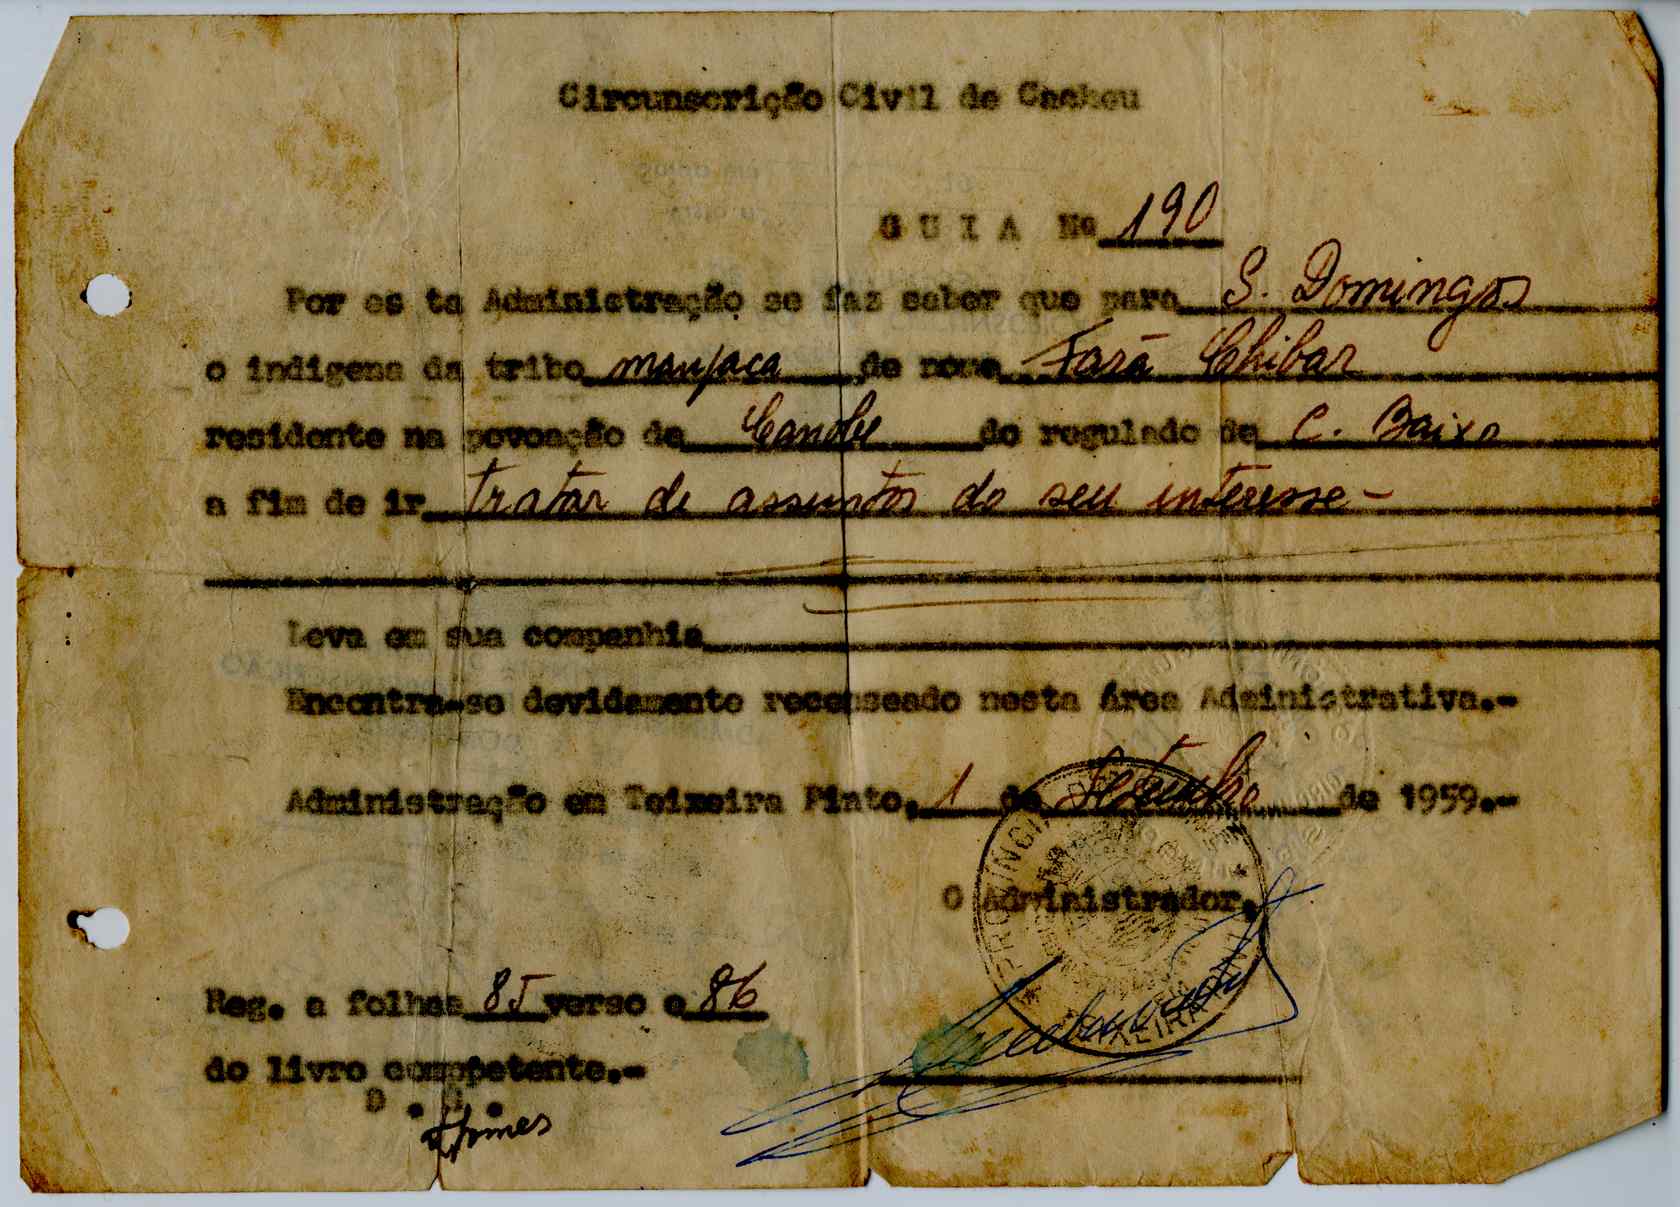 Circunscrição Civil de Cacheu
G U I A Nº 190
Por es ta Administração se faz saber que para S. Domingos
o indigena da tribo manjaca de nome Fará Chibar
residente na povoação de Canobe do regulado de C. Baixo
a fim de ir tratar de assuntos do seu interesse -
Leva em sua companhia
Encontra-se devidamente recenseado nesta Área Administrativa.-
Administração em Teixeira Pinto, 1 de Setembro de 1959.-
O Administrador,
Reg. a folhas 85 verso e 86
do livro competente.-